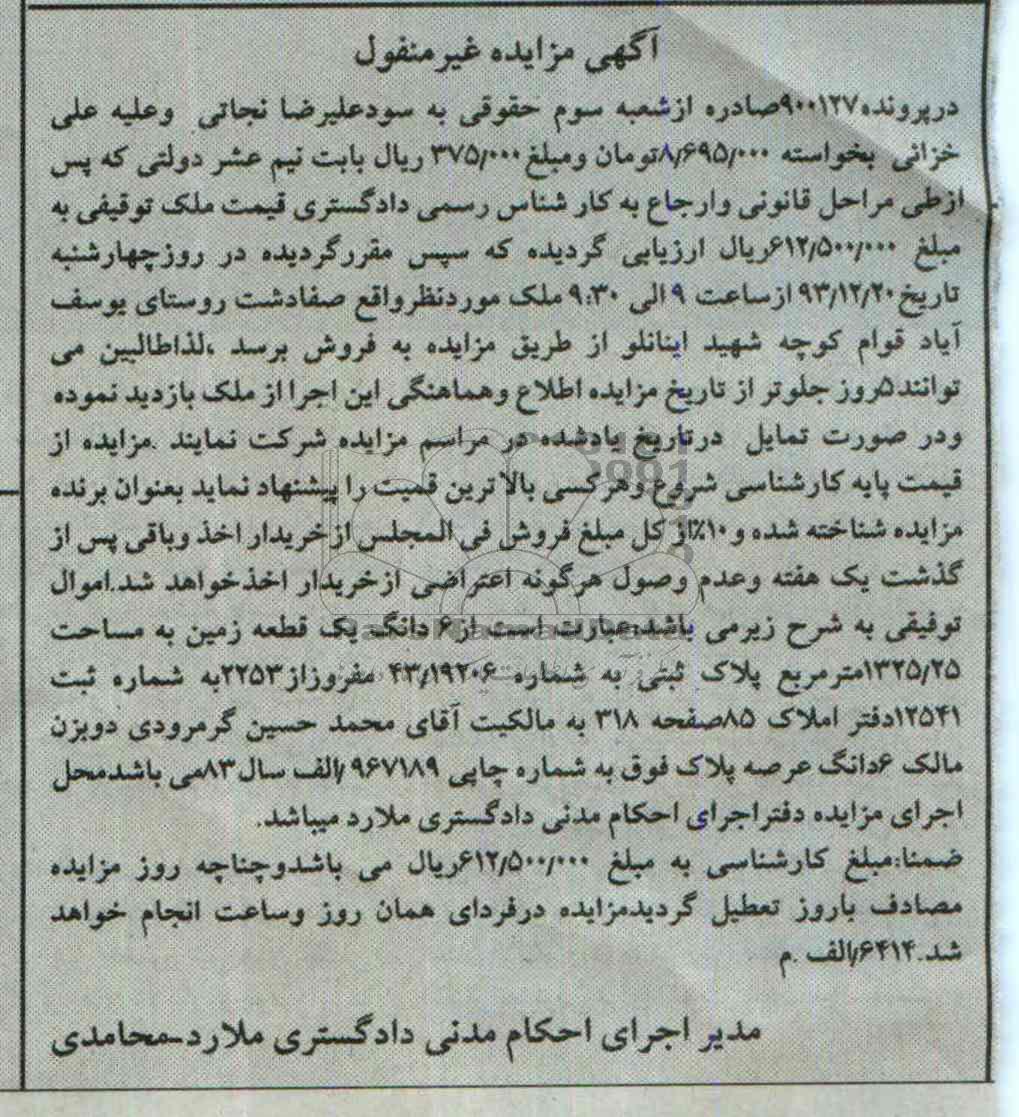 آگهی مزایده غیرمنقول
درپرونده۹۰۰۱۲۷صادره ازشعبه سوم حقوقی به سودعلیرضا نجاتی وعلیه علی
خزائی بخواسته ۸٫۶۹۵٫۰۰۰تومان ومبلغ۳۷۵٫۰۰۰ ریال بابت نیم عشر دولتی که پس
ازطی مراحل قانونی وارجاع به کار شناس رسمی دادگستری قیمت ملک توقیفی به
مبلغ ۶۱۲٫۵۰۰٫۰۰۰ریال ارزیابی گردیده که سپس مقررگردیده در روزچهارشنبه
تاریخ۹۳/۱۲/۲۰ ازساعت ۹الی ۹:۳۰ ملک موردنظرواقع صفادشت روستای یوسف
آیاد قوام کوچه شهید اینانلو از طریق مزایده به فروش برسد ،لذاطالبین می
توانند۵روز جلوتر از تاریخ مزایده اطلاع وهماهنگی این اجرا از ملک بازدید نموده
ودر صورت تمایل درتاریخ یادشده در مراسم مزایده شرکت نمایند .مزایده از
قیمت پایه کارشناسی شروع وهرکسی بالا ترین قمیت را پیشنهاد نماید بعنوان برنده
مزایده شناخته شده و۱۰٪از کل مبلغ فروش فی المجلس ازخریدار اخذ وباقی پس از
گذشت یک هفته وعدم وصول هرگونه اعتراضی ازخریدار اخذخواهد شد.اموال
توفیقی به شرح زیرمی باشد:عبارت است از۶ دانگ یک قطعه زمین به مساحت
۱۳۲۵/۲۵مترمربع پلاک ثبتی به شماره ۴۳/۱۹۲۰۶ مفروزاز۲۲۵۳به شماره ثبت
۱۲۵۴۱دفتر املاک ۸۵صفحه ۳۱۸ به مالکیت آقای محمد حسین گرمرودی دوبزن
مالک ۶دانگ عرصه پلاک فوق به شماره چاپی ۹۶۷۱۸۹/الف سال۸۳می باشدمحل
اجرای مزایده دفتراجرای احکام مدنی دادگستری ملارد میباشد.
ضمنا:مبلغ کارشناسی به مبلغ ۶۱۲٫۵۰۰٫۰۰۰ریال می باشدوچناچه روز مزایده
مصادف باروز تعطیل گردیدمزایده درفردای همان روز وساعت انجام خواهد
شد.۶۴۱۴/الف .م
مدیر اجرای احکام مدنی دادگستری ملارد-محامدی